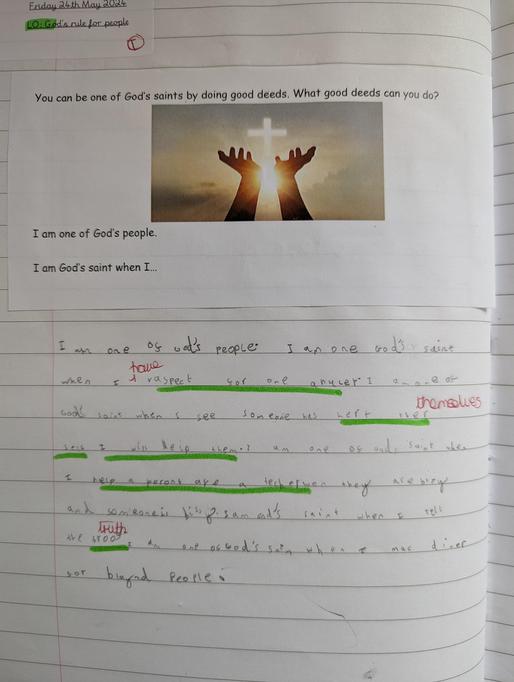 Friday 24th May 2024
LO: God's rule for people
I
You can be one of God's saints by doing good deeds. What good deeds can you do?
I am one of God's people.
I am God's saint when I...
I am one of God's people. I am one God's saint
have
when I raspect for one anucer I am one of
themselves
God's saint when I see someone has hert ther
self I will help them. I am one of God's saint when
I help a peront are a techer wen they are bizy
and someone is I am God's saint when I tell
truth
the troof I am one of God's sain when I mac diner
for people.